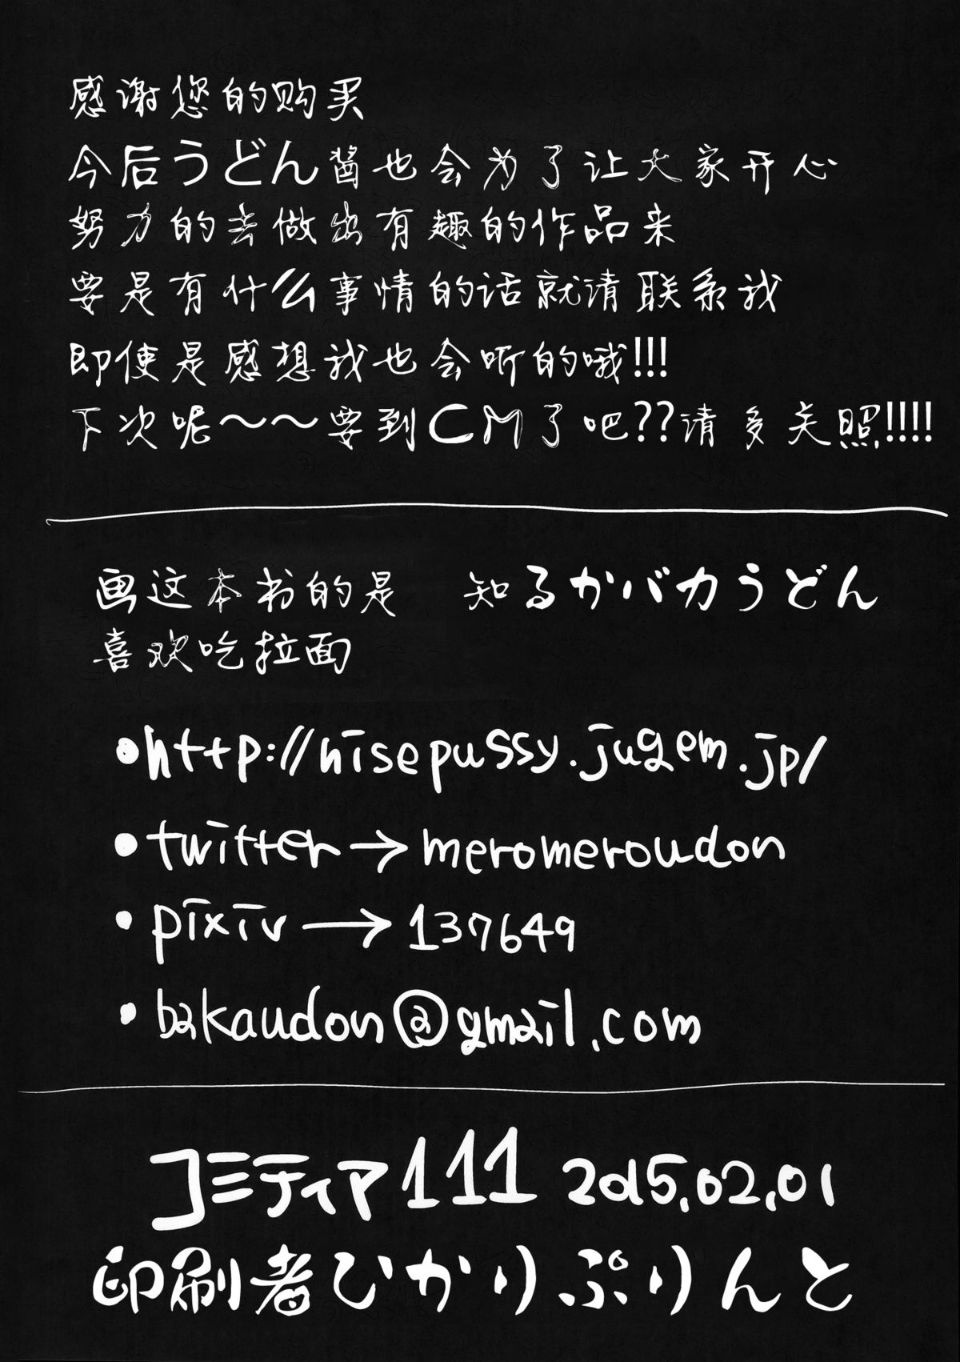 感谢您的购买
今后うどん醤也会为了让大家开心
努力的去做出有趣的作品来
要是有什么事情的话就请联系我
即使是感想我也会听的哦!!!
下次呢～～要到CM了吧??请多关照!!!!
画这本书的是　知るかバカうどん
喜欢吃拉面
•http://nisepussy.jugem.jp/
•twitter→meromeroudon
•pixiv→137649
•bakaudon@gmail.com
コミティア111 2015.02.01
印刷者ひかりぷりんと